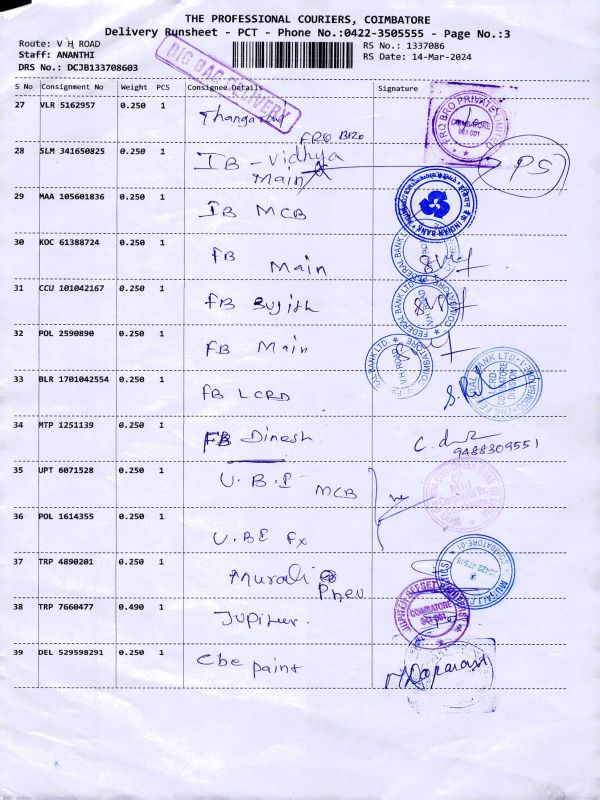 THE PROFESSIONAL COURIERS, COIMBATORE
Delivery Runsheet - PCT - Phone No.:0422-3505555 - Page No.:3
Route: V H ROAD
RS No.: 1337086
Staff: ANANTHI
RS Date: 14-Mar-2024
DRS No.: DCJB133708603
BIG BAG DELIVERY
S No Consignment No Weight PCS Consignee Details Signature
27 VLR 5162957 0.250 1 Thangaraj
FRQ Bro
FRQ BRO PRIVATE LIMITED
COIMBATORE
641 001
28 SLM 341650825 0.250 1 IB - Vidhya
Main
29 MAA 105601836 0.250 1 IB MCB
INDIAN BANK
30 KOC 61388724 0.250 1 FB
Main
FEDERAL BANK LTD.
31 CCU 101042167 0.250 1 FB Sujith
FEDERAL BANK LTD.
V.H.ROAD
COIMBATORE
32 POL 2590890 0.250 1 FB Main
BANK LTD.
V.H.ROAD
33 BLR 1701042554 0.250 1 FB LCRD
BANK LTD.
LCRD
COIMBATORE
DIVISION
34 MTP 1251139 0.250 1 FB Dinesh
9488309551
35 UPT 6071528 0.250 1 U.B.I
MCB
36 POL 1614355 0.250 1 U.BI Fx
37 TRP 4890201 0.250 1 Murali
Phev
COIMBATORE-01
38 TRP 7660477 0.490 1 Jupiter
COIMBATORE
641 001
39 DEL 529598291 0.250 1 Cbe paint